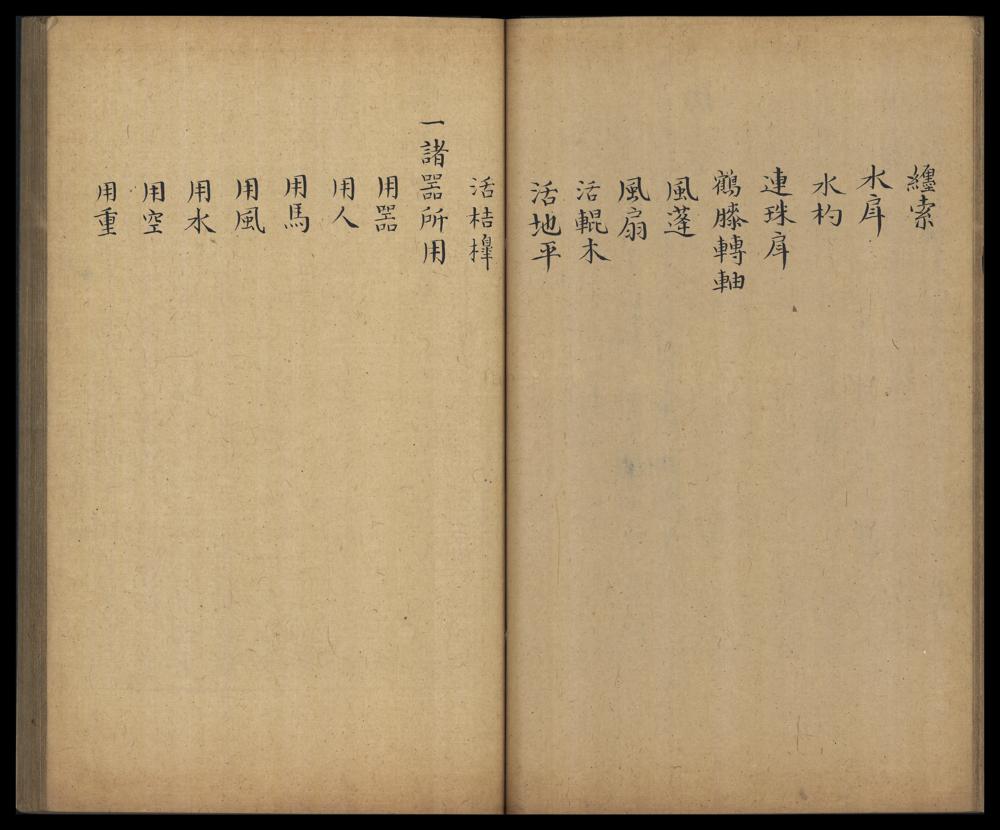 纏索
水戽
水杓
連珠戽
鶴膝轉軸
風蓬
風扇
活輥木
活地平
活桔槹
一諸器所用
用器
用人
用馬
用風
用水
用空
用重